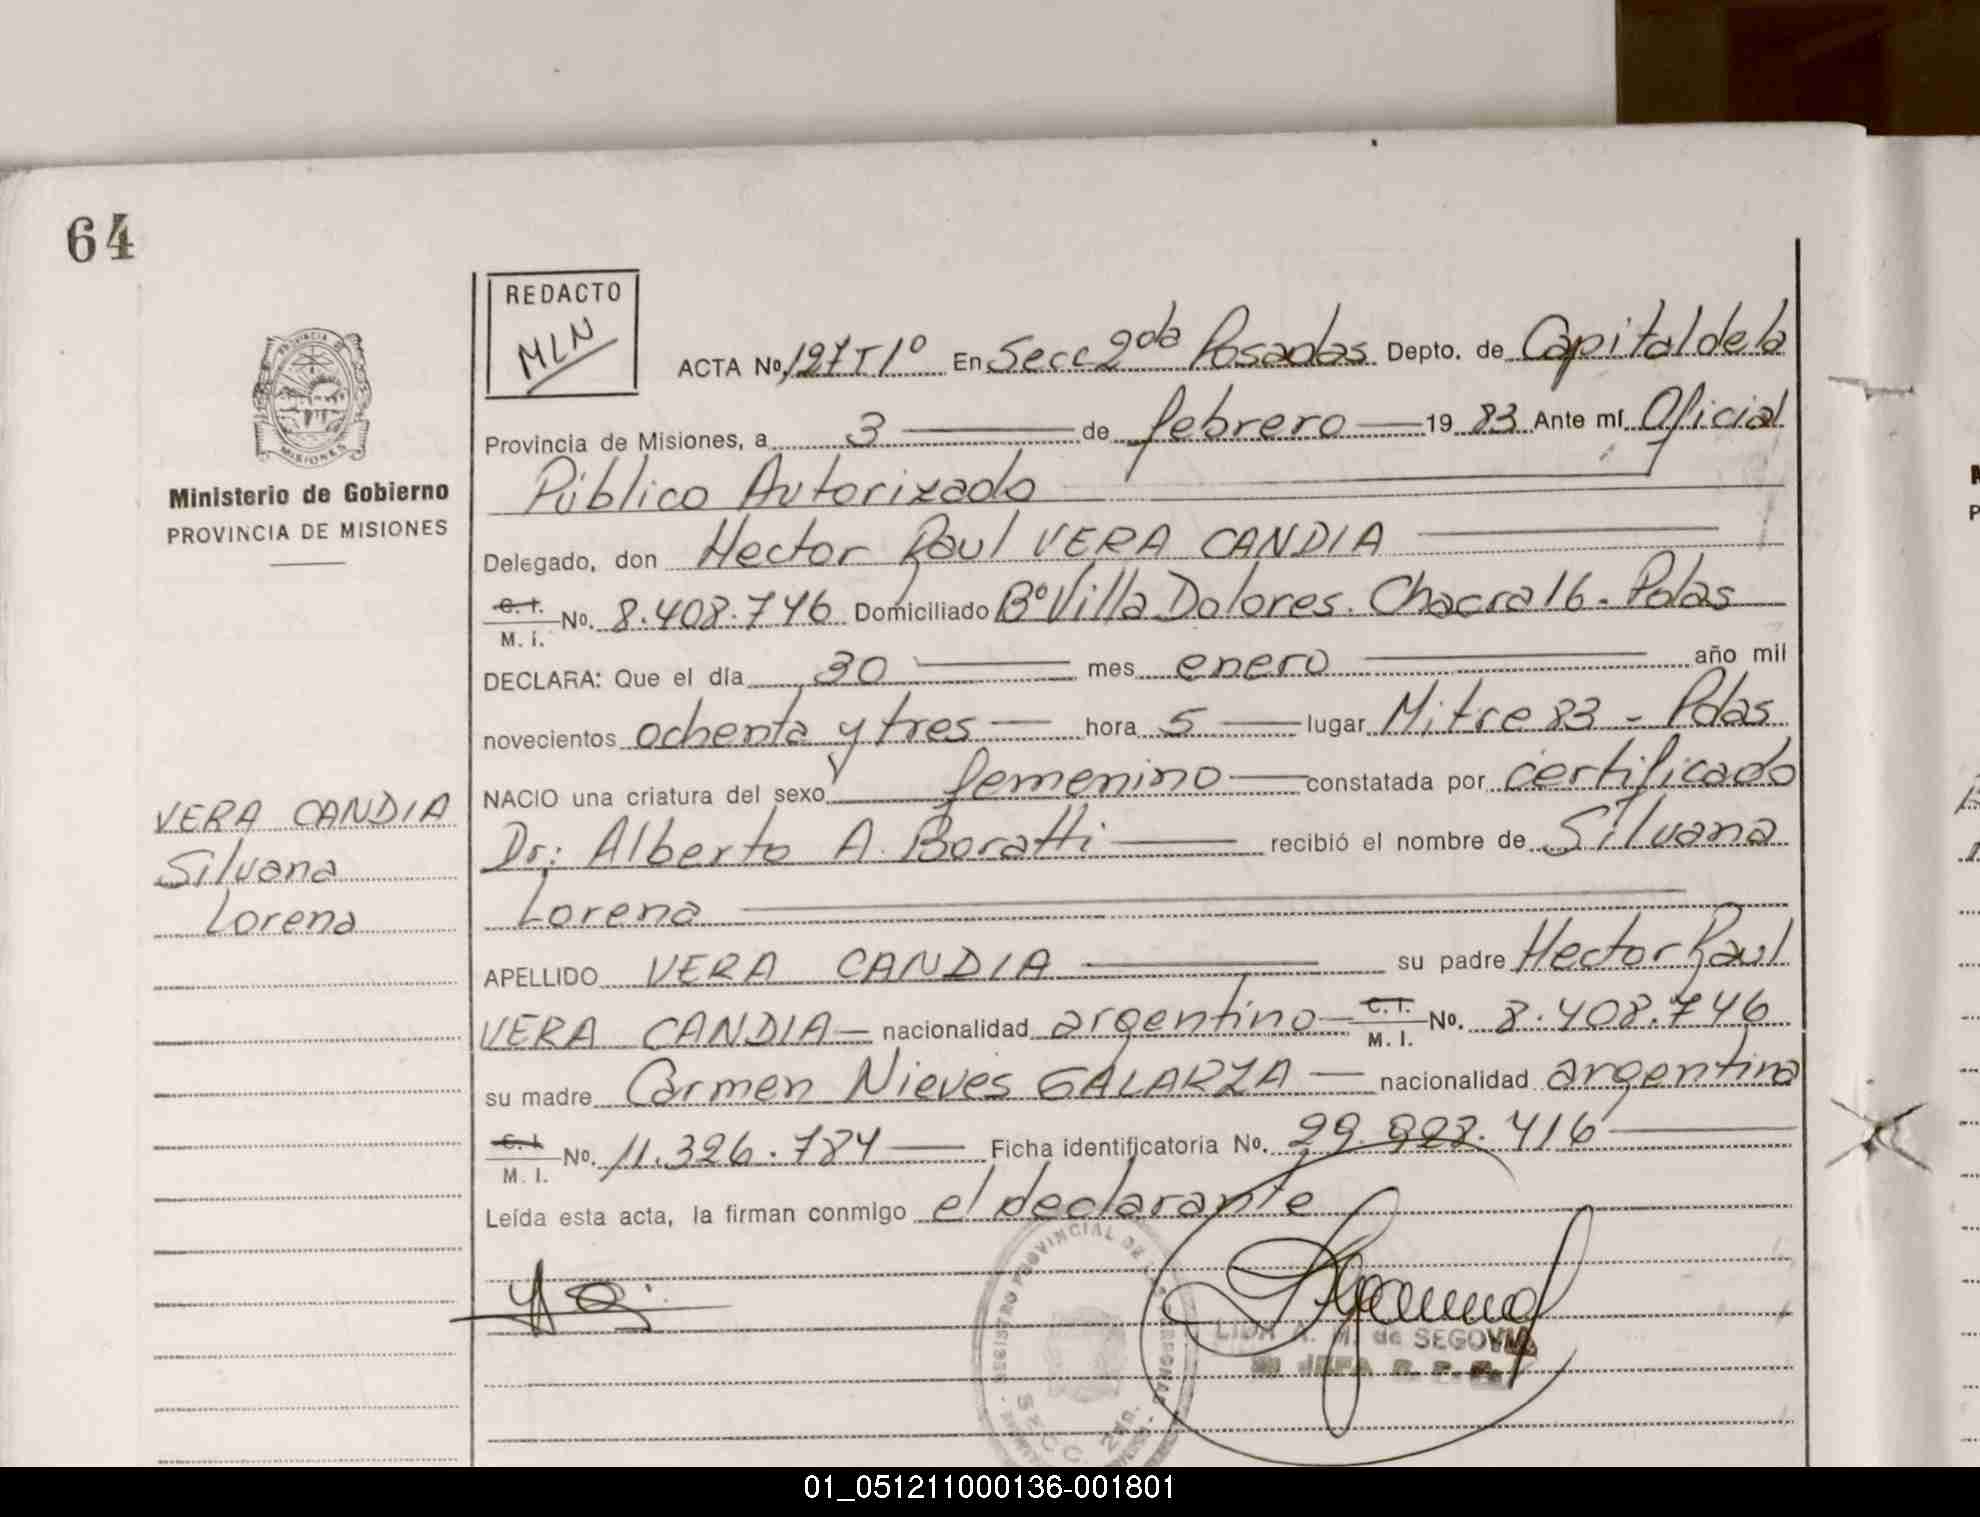 64
REDACTO
MLN
ACTA No. 127 T 1º En Secc 2da Posadas Depto. de Capital de la
Provincia de Misiones, a 3 de febrero 19 83 Ante mí Oficial
Público Autorizado
Ministerio de Gobierno
PROVINCIA DE MISIONES
Delegado, don Hector Raul VERA CANDIA
C. I. / M. I. No. 8.408.746 Domiciliado Bº Villa Dolores. Chacra 16 - Pdas
DECLARA: Que el día 30 mes enero año mil
novecientos ochenta y tres hora 5 lugar Mitre 83 - Pdas
NACIO una criatura del sexo femenino constatada por certificado
Dr: Alberto A. Boratti recibió el nombre de Silvana
Lorena
VERA CANDIA
Silvana
Lorena
APELLIDO VERA CANDIA su padre Hector Raul
VERA CANDIA nacionalidad argentino C. I. / M. I. No. 8.408.746
su madre Carmen Nieves GALARZA nacionalidad argentina
C. I. / M. I. No. 11.326.784 Ficha identificatoria No. 29.928.416
Leída esta acta, la firman conmigo el declarante
REGISTRO PROVINCIAL DE
SECC. 2DA.
LIDA A. M. de SEGOVIA
JEFA
01_051211000136-001801